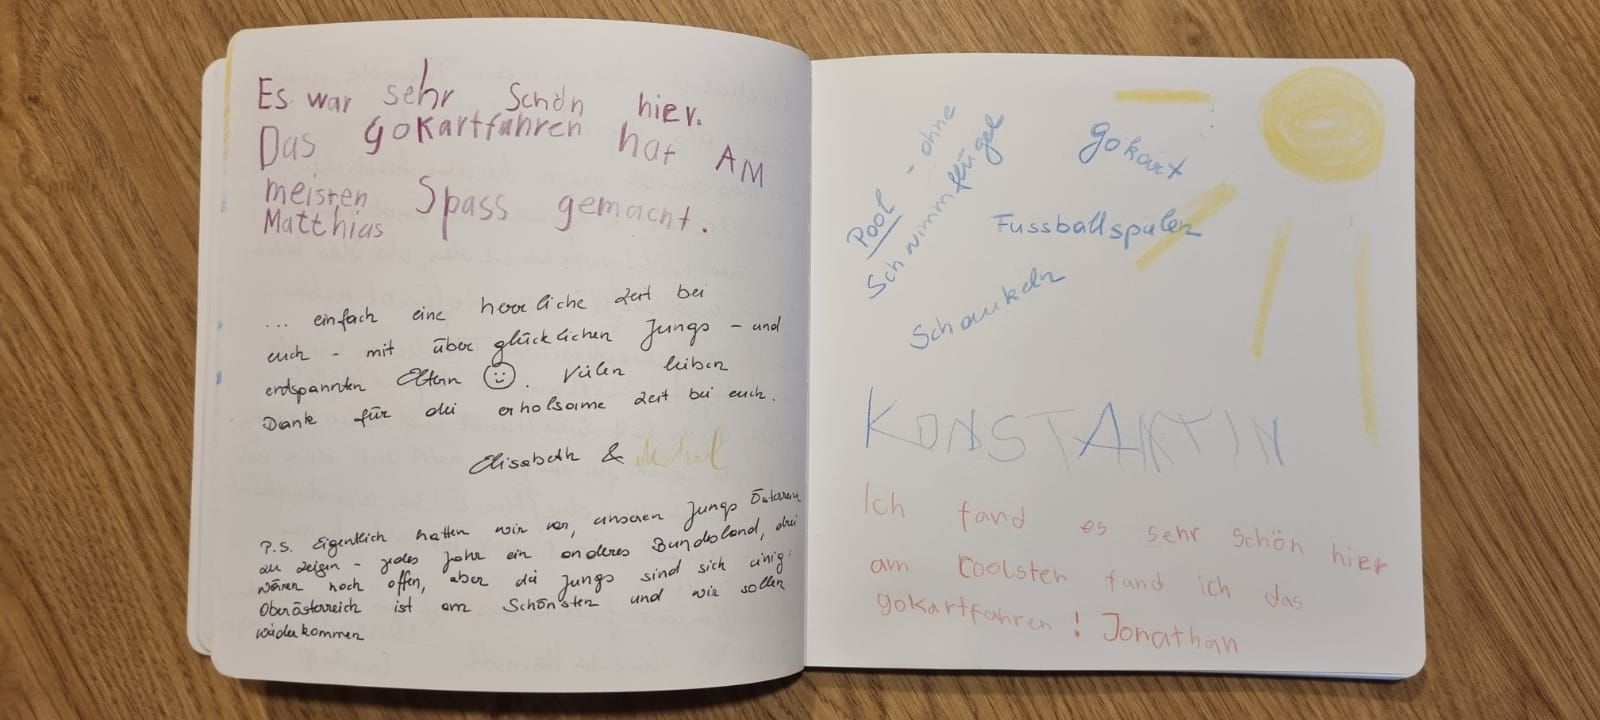 Es war sehr Schön hier.
Das Gokartfahren hat AM
meisten Spass gemacht.
Matthias
... einfach eine herrliche Zeit bei
euch - mit über glücklichen Jungs - und
entspannten Eltern ☺. Vielen lieben
Dank für die erholsame Zeit bei euch.
Elisabeth &
P.S. Eigentlich hatten wir vor, unseren Jungs Österreich
zu zeigen - jedes Jahr ein anderes Bundesland, drei
wären noch offen, aber die Jungs sind sich einig:
Oberösterreich ist am Schönsten und wir sollen
wiederkommen
Pool - ohne
Schwimmflügel
Gokart
Fussballspielen
Schaukeln
KONSTANTIN
Ich fand es sehr schön hier
am coolsten fand ich das
gokartfahren! Jonathan